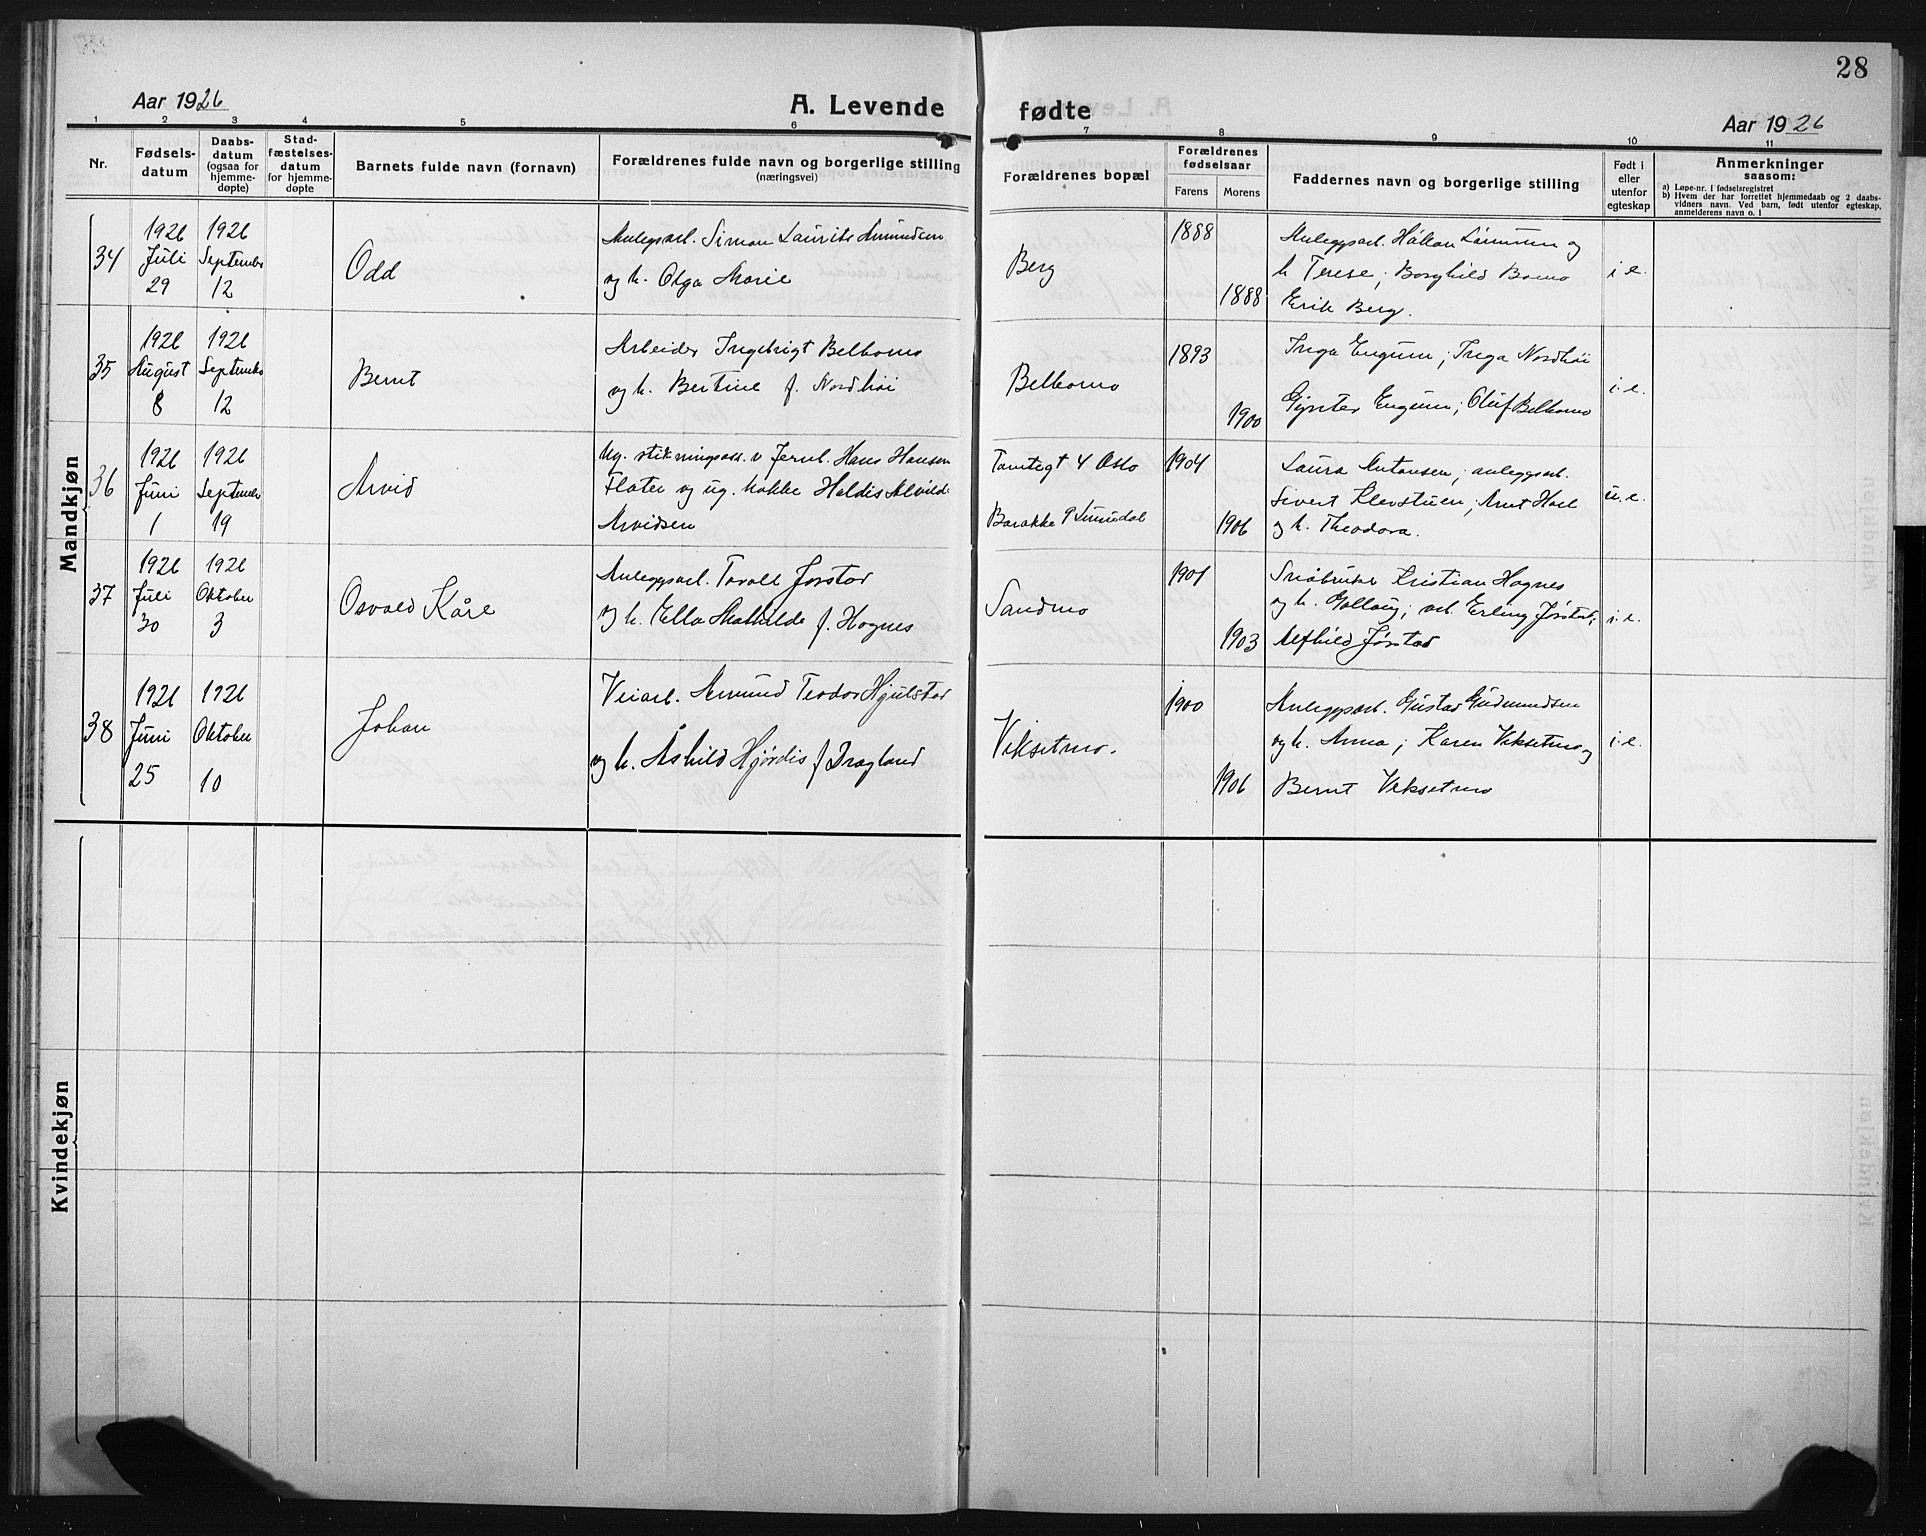 28
Aar 1926
A. Levende fødte
Aar 1926
1 2 3 4 5 6 7 8 9 10 11
Nr.
Fødsels-
datum
Daabs-
datum
(ogsaa for
hjemme-
døpte)
Stad-
fæstelses-
datum
for hjemme-
døpte
Barnets fulde navn (fornavn)
Forældrenes fulde navn og borgerlige stilling
(næringsvei)
Forældrenes bopæl
Forældrenes
fødselsaar
Farens Morens
Faddernes navn og borgerlige stilling
Født i
eller
utenfor
egteskap
Anmerkninger
saasom:
a) Løpe-nr. i fødselsregistret
b) Hvem der har forrettet hjemmedaab og 2 daabs-
vidners navn. Ved barn, født utenfor egteskap,
anmelderens navn o. l
Mandkjøn
34
1926
Juli
29
1926
September
12
Odd
Anlegsarb. Simon Laurits Amundsen
og h. Olga Marie
Berg
1888
1888
Anleggsarb. Håkon og
h. Terese; Borghild Bomo
Erik Berg.
i e.
35
1926
August
8
1926
September
12
Bernt
Arbeider Ingebrigt Belbomo
og h. Bertine f. Nordhøi
Belbomo
1893
1900
Inga Engum; Inga Nordhöi
Gÿnter Engum; Oluf Belbomo
i. e.
36
1926
Juni
1
1926
September
19
Arvid
Ug. stikningsass. v Jernb. Hans Hansen
Flater og ug. kokke Haldis Alvilde
Arvidsen
Tomtegt 4 Oslo
Barakke 9 Sunndal
1904
1906
Laura Antonsen; anleggsarb.
Sivert Klevstuen; Arnt Hoel
og h. Theodora.
u. e.
37
1926
Juli
30
1926
Oktober
3
Osvald Kåre
Anleggsarb. Torolf Jørstad
og h. Ella Mathilde f. Hognes
Sandmo
1901
1903
Småbruker Kristian Hognes
og h. Gollaug; arb. Erling Jørstad;
Alfhild Jørstad
i. e.
38
1926
Juni
25
1926
Oktober
10
Johan
Veiarb. Amund Teodor Hjulstad
og h. Åshild Hjørdis f Dragland
Viksetmo.
1900
1906
Anleggsarb. Gustav Gudmundsen
og h. Anna; Karen Viksetmo og
Bernt Viksetmo
i. e.
Kvindekjøn